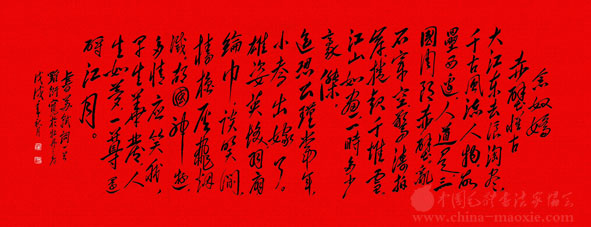 念奴娇
赤壁怀古
大江东去浪淘尽
千古风流人物故
垒西边人道是三
国周郎赤壁乱
石穿空惊涛拍
岸捲起千堆雪
江山如画一时多少
豪杰
遥想公瑾当年
小乔出嫁了
雄姿英发羽扇
纶巾谈笑间
樯橹灰飞烟
灭故国神游
多情应笑我
早生华发人
生如梦一尊还
酹江月
中国毛体书法家协会
www.china-maoxie.com